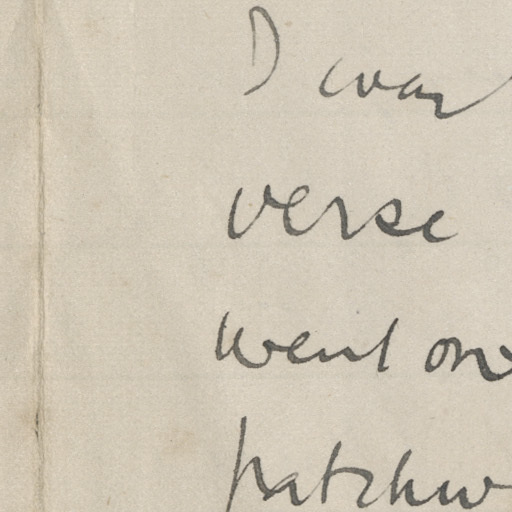 I was
verse
went on
patchw